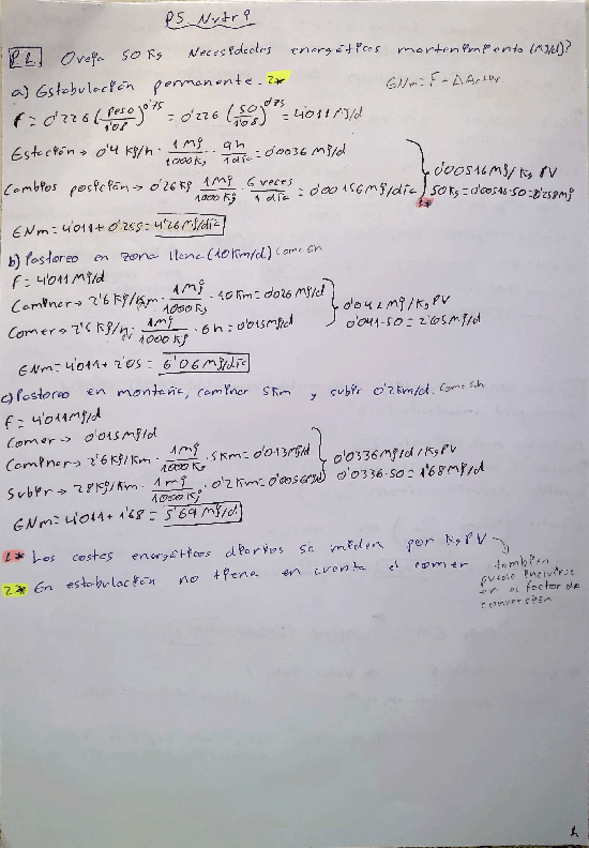 P5. Nutri
P.1. Oveja 50 Kg Necesidades energéticas mantenimiento (MJ/d)?
a) Estabulación permanente. 2*
ENm = F + ΔActiv
F = 0'226 (Peso/1'08)^0'75 = 0'226 (50/1'08)^0'75 = 4'011 MJ/d
Estación → 0'4 KJ/h · 1 MJ/1000 KJ · 9h/1 día = 0'0036 MJ/d
Cambios posición → 0'26 KJ · 1 MJ/1000 KJ · 6 veces/1 día = 0'00156 MJ/día
0'00516 MJ/Kg PV
50 Kg = 0'00516·50 = 0'258 MJ
1*
ENm = 4'011 + 0'258 = 4'26 MJ/día
b) Pastoreo en zona llana (10 Km/d) Come 6h
F = 4'011 MJ/d
Caminar → 2'6 KJ/Km · 1 MJ/1000 KJ · 10 Km = 0'026 MJ/d
Comer → 2'5 KJ/h · 1 MJ/1000 KJ · 6h = 0'015 MJ/d
0'041 MJ/Kg PV
0'041·50 = 2'05 MJ/d
ENm = 4'011 + 2'05 = 6'06 MJ/día
c) Pastoreo en montaña, caminar 5Km y subir 0'2 Km/d. Come 6h
F = 4'011 MJ/d
Comer → 0'015 MJ/d
Caminar → 2'6 KJ/Km · 1 MJ/1000 KJ · 5 Km = 0'013 MJ/d
Subir → 28 KJ/Km · 1 MJ/1000 KJ · 0'2 Km = 0'0056 MJ/d
0'0336 MJ/d /Kg PV
0'0336·50 = 1'68 MJ/d
ENm = 4'011 + 1'68 = 5'69 MJ/d
1* Los costes energéticos diarios se miden por Kg PV
2* En estabulación no tiene en cuenta el comer
también
puede incluirse
en el factor de
conversión
1